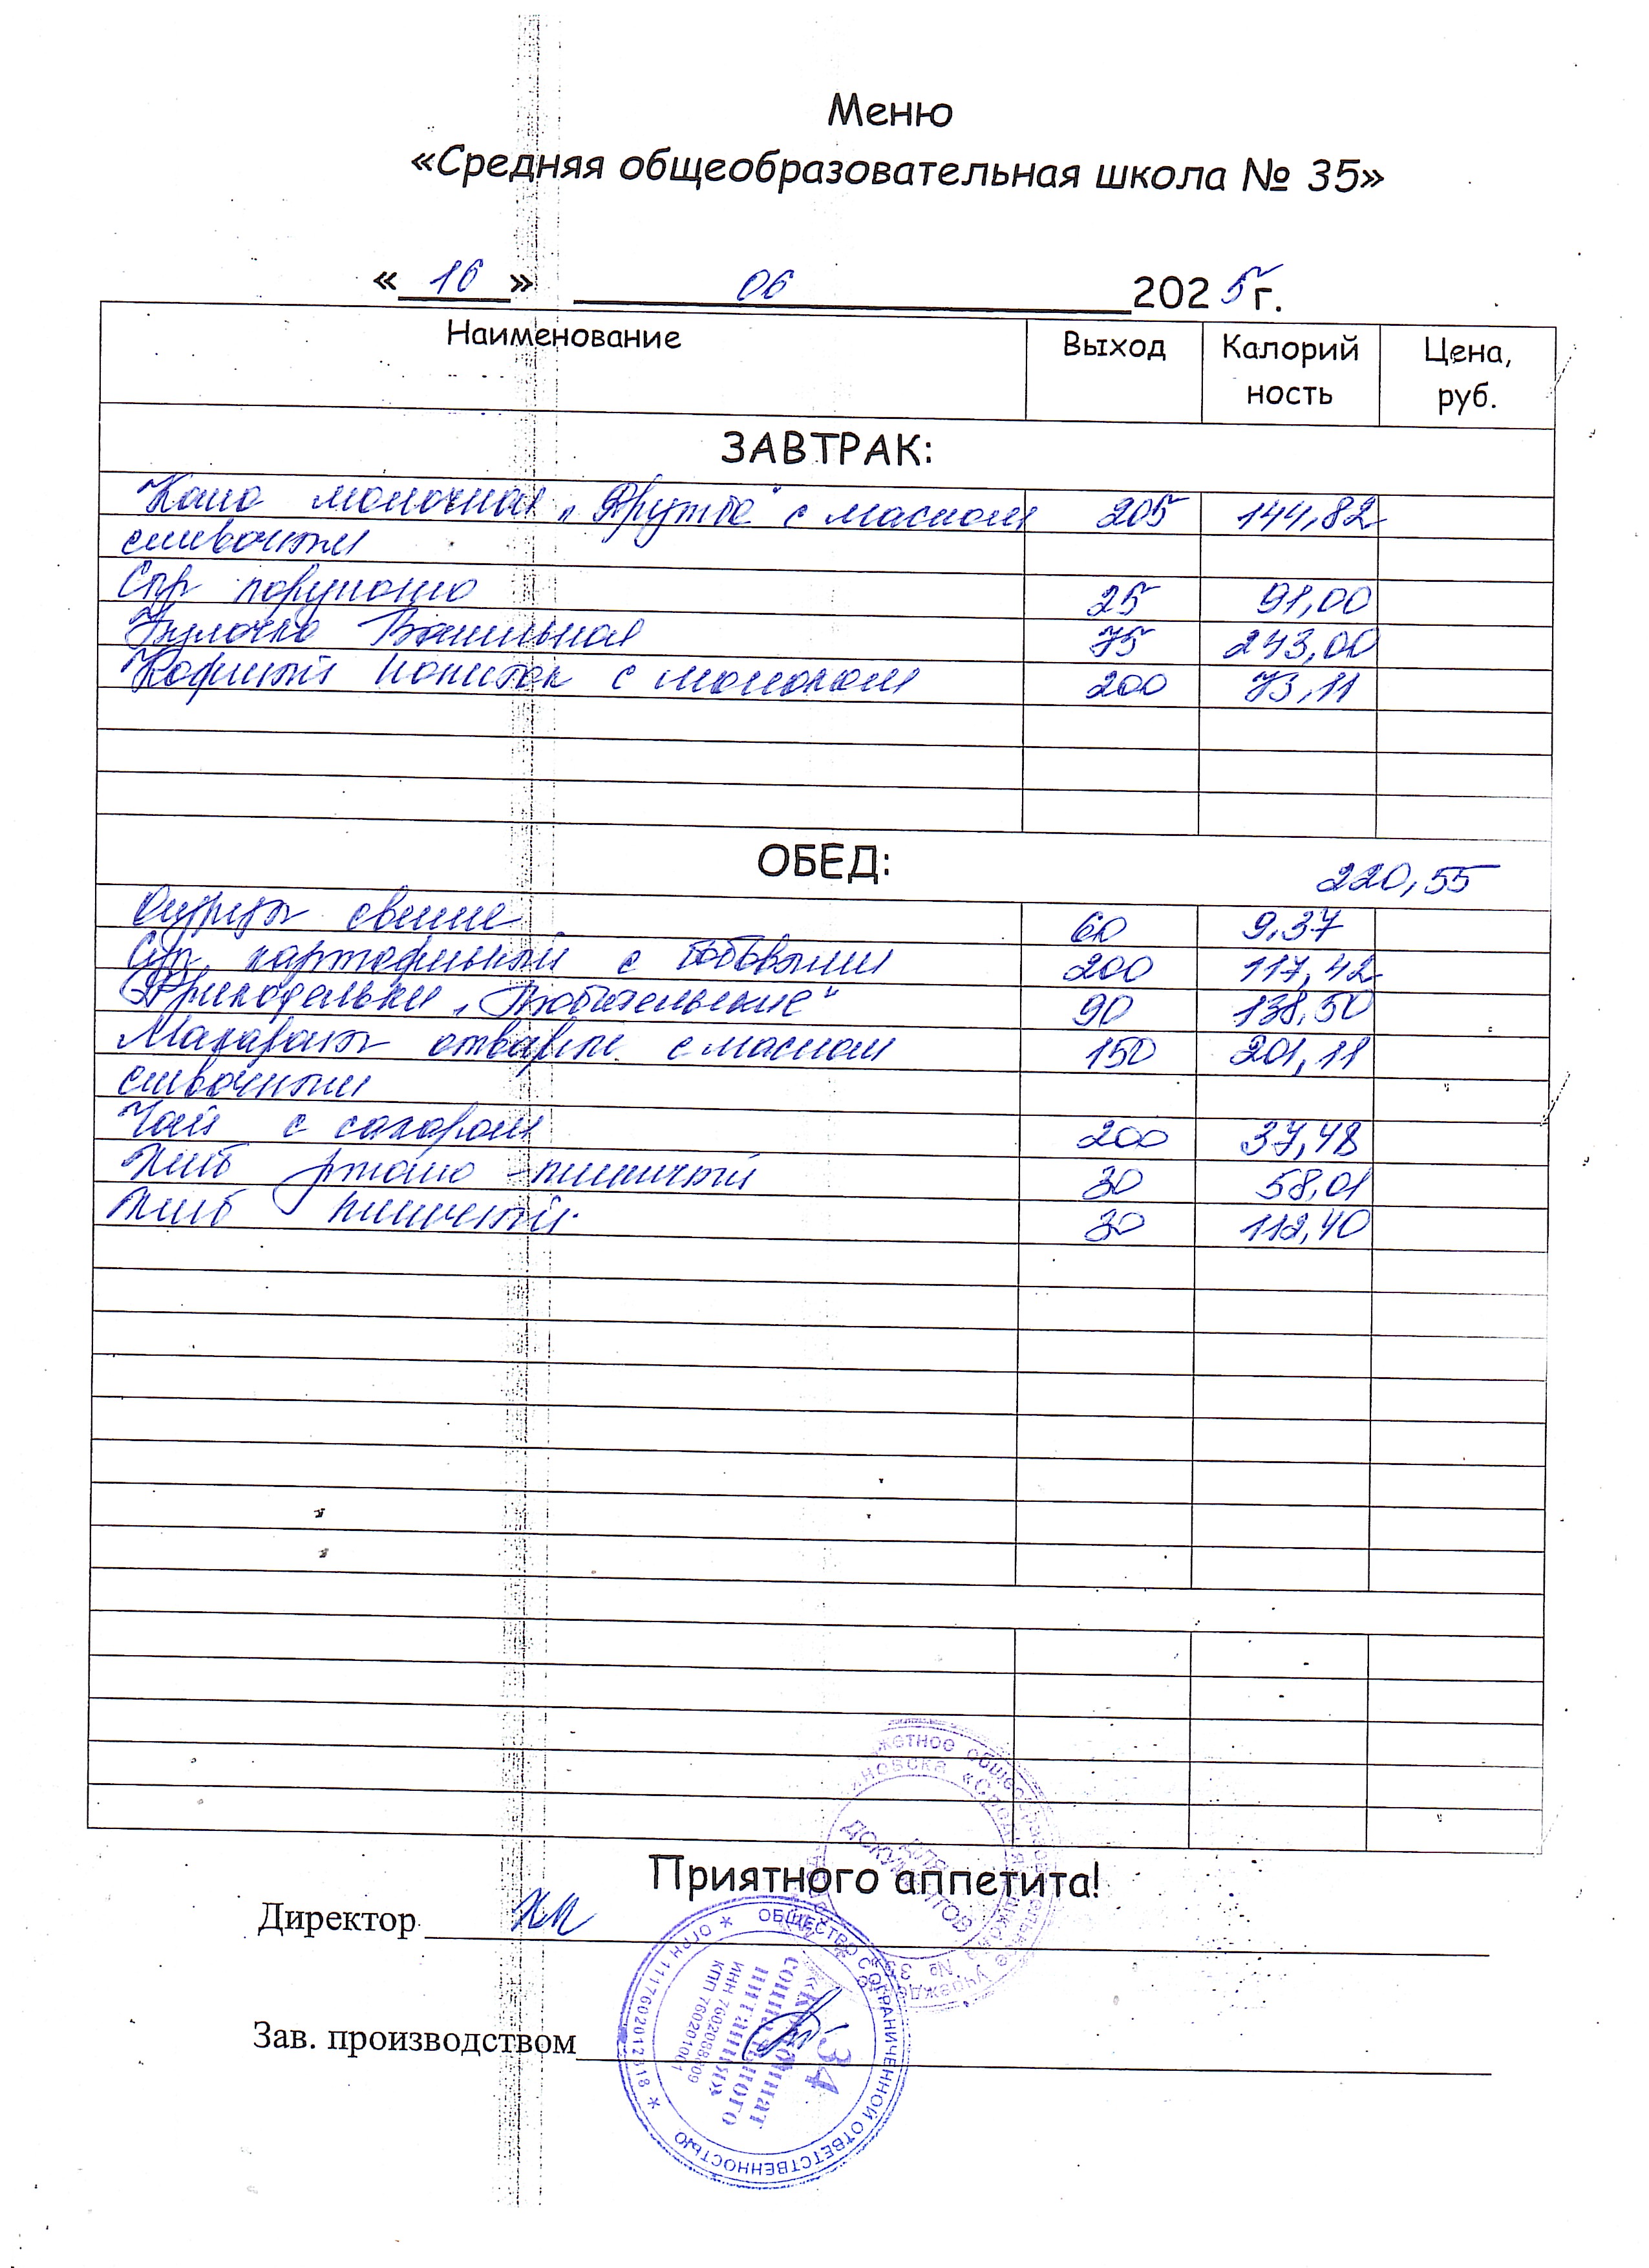 Меню
«Средняя общеобразовательная школа № 35»
« 16 » 06 2025 г.
Наименование Выход Калорий Цена,
ность руб.
ЗАВТРАК:
Каша молочная "Дружба" с маслом 205 144,82
сливочным
Сыр порционно 25 91,00
Булочка Ванильная 75 243,00
Кофейный напиток с молоком 200 73,11
ОБЕД: 220,55
Огурцы свежие 60 9,37
Суп картофельный с бобовыми 200 117,42
Фрикадельки "Любительские" 90 138,50
Макароны отварные с маслом 150 201,11
сливочным
Чай с сахаром 200 37,48
Хлеб ржано-пшеничный 30 58,01
Хлеб пшеничный 30 112,40
Приятного аппетита!
Директор
Зав. производством
ОБЩЕСТВО С ОГРАНИЧЕННОЙ ОТВЕТСТВЕННОСТЬЮ
«Комбинат
социального
питания»
34
ДЛЯ
ДОКУМЕНТОВ